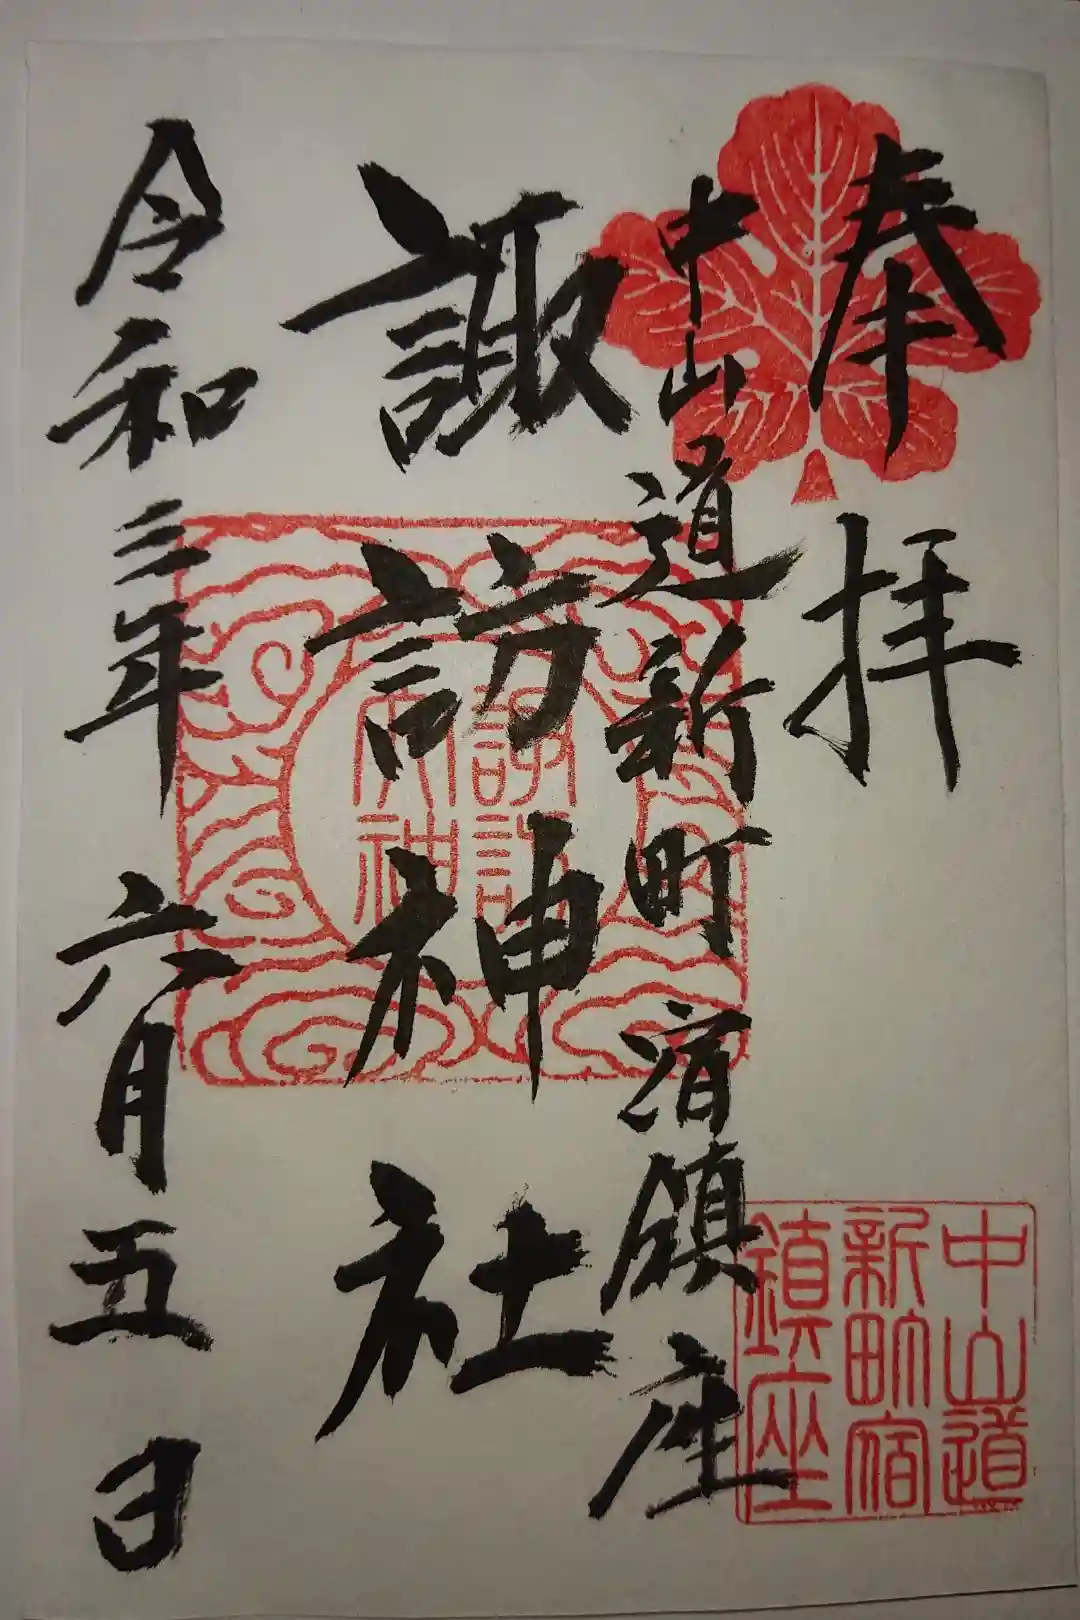 奉拝
中山道新町宿鎮座
諏訪神社
令和三年六月五日
諏訪
大神
中山道
新町宿
鎮座